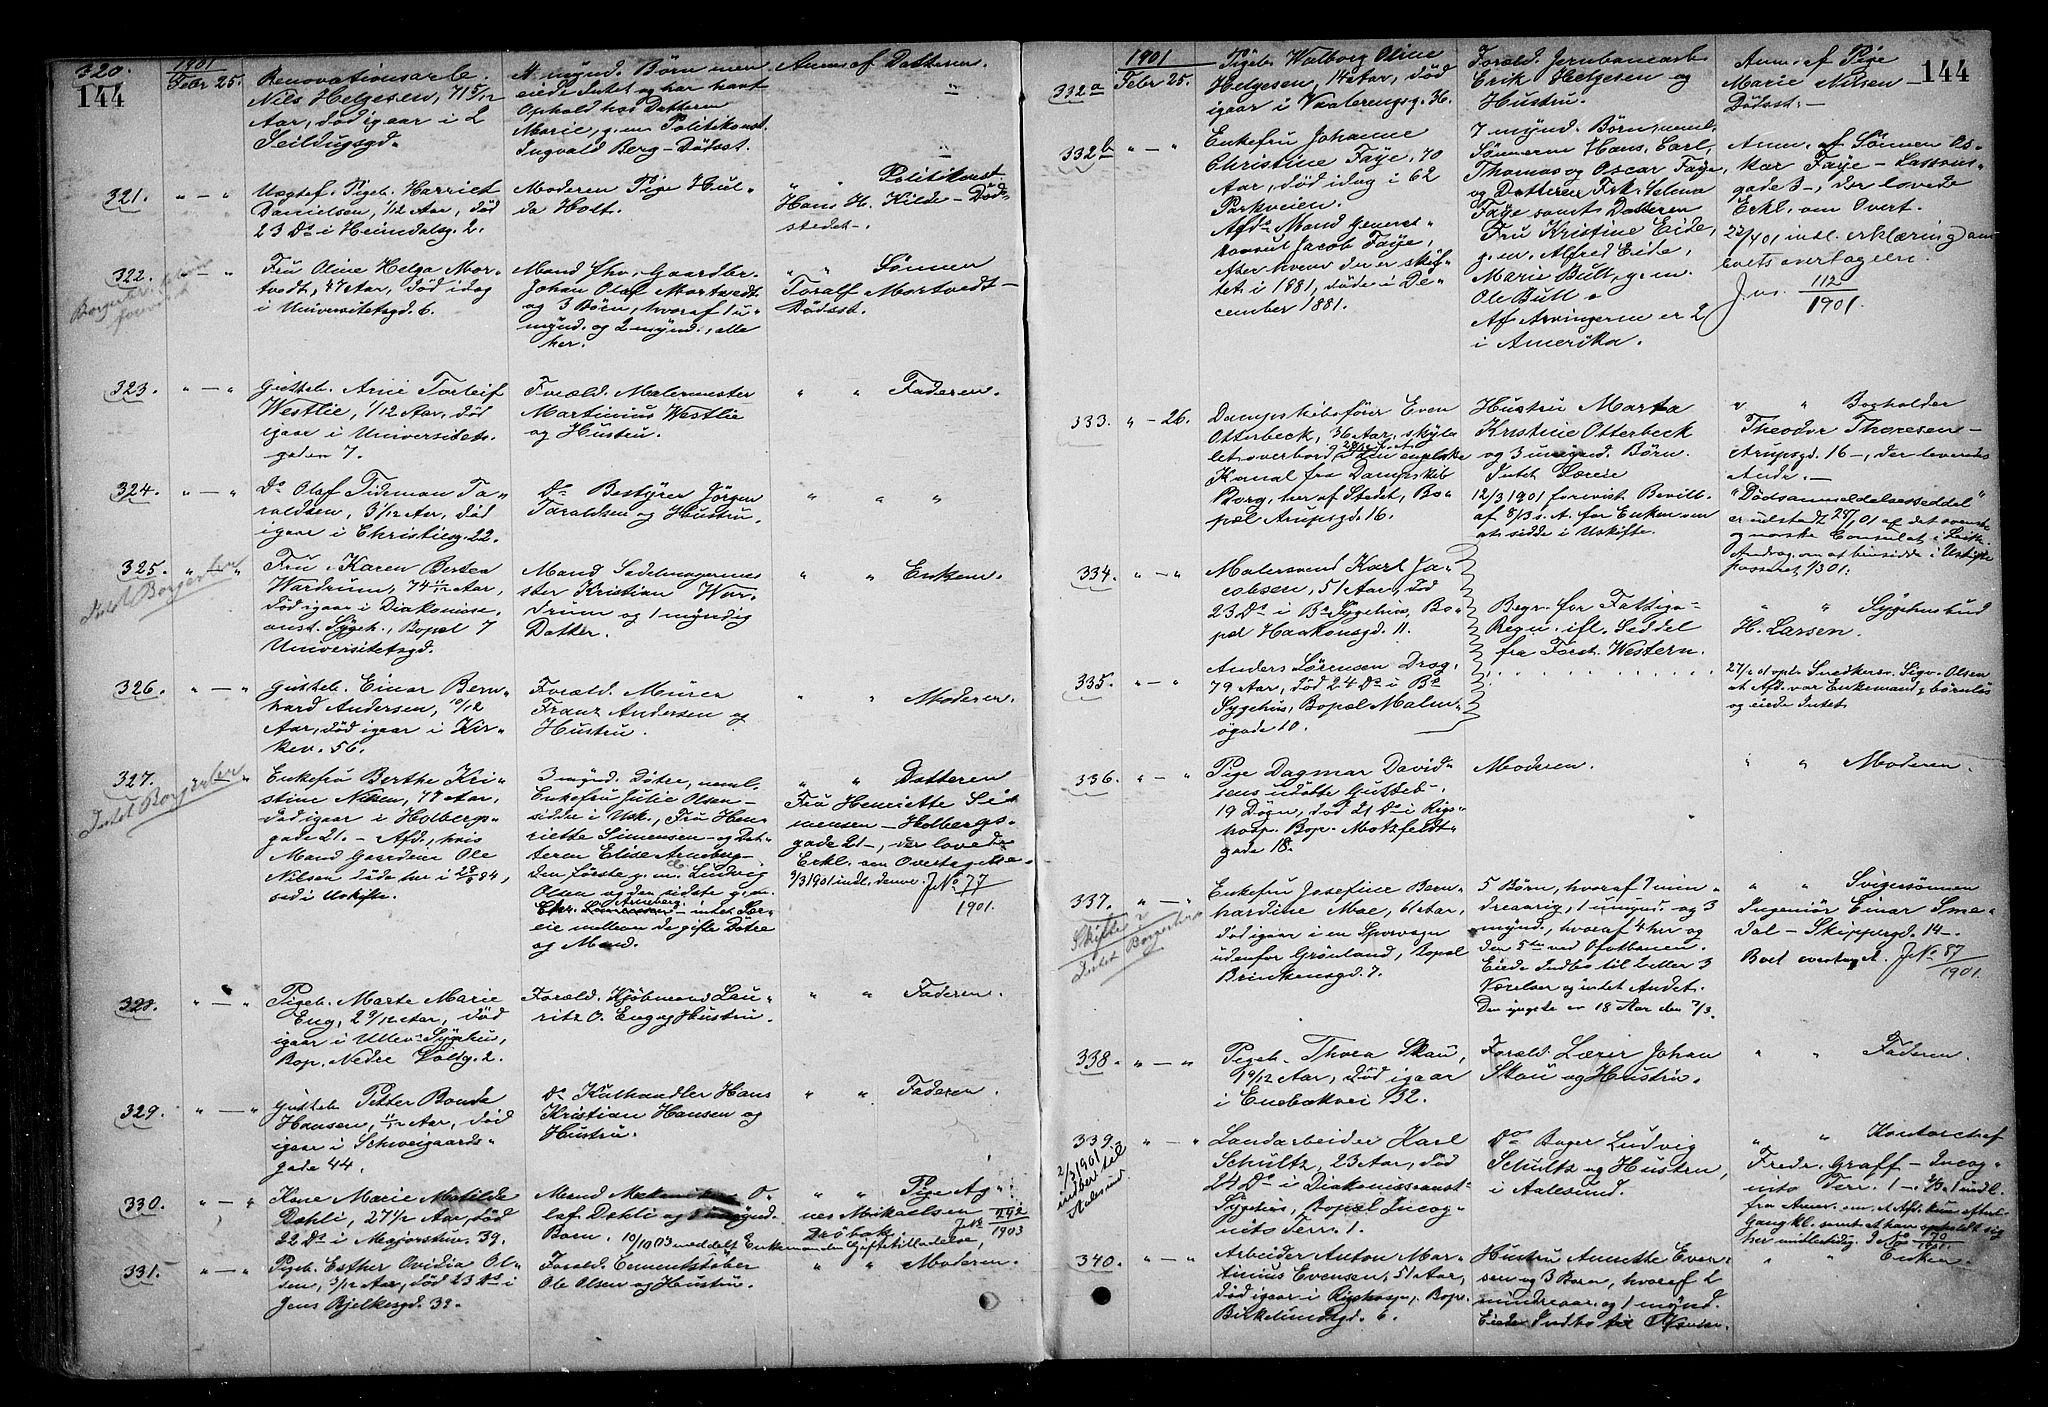 144
320.
1901
Febr 25.
Renovationsarb.
Nils Helgesen, 71 5/12
Aar, død igaar i 2
Seildugsgd.
4 mynd. Børn men
eiede Intet og har havt
Ophold hos Datteren
Marie, g. m. Politikonst.
Ingvald Berg - Dødsst.
Anm. af Datteren.
321.
" — "
Uægtef. Pigeb. Harriet
Danielsen, 1/12 Aar, død
23 Ds i Heimdalsg. 2.
Moderen Pige Hul-
da Holt.
" " Politikonst
Hans H. Kilde - Død-
stedet -.
322.
" — "
Fru Oline Helga Mor-
tvedt, 47 Aar, død idag
i Universitetsgd. 6.
Mand fhv. Gaardbr.
Johan Olaf Mortvedt
og 3 Børn, hvoraf 1 u-
mynd. og 2 mynd., alle
her.
" " Sønnen
Toralf Mortvedt -
Dødsst.
323.
" — "
Gutteb. Arne Torleif
Westlie, 1/12 Aar, død
igaar i Universitets-
gaden 7.
Foræld. Malermester
Martinius Westlie
og Hustru.
" " Faderen.
324.
" — "
Do Olaf Tideman Ta-
raldsen, 3/12 Aar, død
igaar i Christiesg. 22.
Do Bestyrer Jørgen
Taraldsen og Hustru.
" " "
325.
" — "
Intet Borgerbrev
Fru Karen Bertea
Wardrum, 74 11/12 Aar,
død igaar i Diakonisse-
anst. Sygeh., Bopæl 7
Universitetsgd.
Mand Sadelmagermes-
ster Kristian War-
drum og 1 myndig
Datter.
" " Enkem.
326.
" — "
Gutteb. Einar Bern-
hard Andersen, 10/12
Aar, død igaar i Kir-
kev. 56.
Foræld. Murer
Franz Andersen og
Hustru.
" " Moderen.
327.
" — "
Intet Borgerbrev
Enkefru Berthe Kri-
stine Nilsen, 77 Aar,
død igaar i Holbergs-
gade 21. - Afd., hvis
Mand Gaardeier Ole
Nilsen døde her i 84,
sad i Uskifte.
3 mynd. Døtre, neml.
Enkefru Julie Olsen -
sidde i Usk., Fru Hen-
riette Simensen - og Dat-
teren Elise Arneberg -
den første g. m. Ludvig
Olsen og den sidste g. m.
Chr. Arneberg - intet Sær-
eie mellem de gifte Døtre
og Mand.
" " Datteren
Fru Henriette Si-
mensen - Holbergs-
gade 21 -, der lovede
Erkl. om Overtagelse.
/3 1901 indl. denne. J No 77/1901.
328.
" — "
Pigeb. Marte Marie
Eng, 2 9/12 Aar, død
igaar i Ullev. Sygehus,
Bop. Nedre Voldg. 2.
Foræld. Kjøbmand Lau-
ritz O. Eng og Hustru.
" " Faderen.
329.
" — "
Gutteb. Petter Bonde
Hansen, 11/12 Aar, død
igaar i Schweigaards-
gade 44.
Do Kulhandler Hans
Kristian Hansen og
Hustru.
" " Faderen.
330.
" — "
Kone Marie Matilde
Dahli, 27 1/2 Aar, død
22 Ds i Majorstuv. 39.
Mand O-
laf Dahli og umynd.
Barn. 10/10 03 meddelt Enkemanden Giftetilladelse,
" " Pige Ag-
nes Mikaelsen
Drøbak
J No 292/1903
331.
" — "
Pigeb. Esther Ovidia Ol-
sen, 3/12 Aar, død 23 Ds i
Jens Bjelkesgd. 32.
Foræld. Cementstøber
Ole Olsen og Hustru.
" " Moderen.
144
1901
332a
Febr 25.
Pigeb. Walborg Oline
Helgesen, 14 Aar, død
igaar i Vaalerengsg. 36.
Foræld. Jernbanearb.
Erik Helgesen og
Hustru.
Anm. af Pige
Marie Nilsen
Dødsst. -
332b
" — "
Enkefru Johanne
Christine Faye, 70
Aar, død idag i 62
Parkveien.
Afds Mand General-
konsul Jacob Faye,
efter hvem der er skif-
tet i 1881, døde i De-
cember 1881.
7 mynd. Børn, neml.
Sønnerne Hans, Carl,
Thomas og Oscar Faye,
og Datteren Frk. Selma
Faye samt Datteren
Fru Kristine Eide,
g. m. Alfred Eide,
Marie Bull, g. m.
Ole Bull.
Af Arvingerne er 2
i Amerika.
Anm. af Sønnen Os-
kar Faye - Lassons-
gade 3 -, der lovede
Erkl. om Overt.
22/4 01 indl. erklæring om
boets overtagelse.
J No 112/1901.
333.
" — 26.
Dampskibsfører Even
Otterbeck, 36 Aar, skyl-
let overbord i den engelske
Kanal fra Dampskib
Borg, her af Stedet, Bo-
pæl Arupsgd. 16.
Hustru Marta
Kristine Otterbeck
og 3 umynd. Børn.
Intet Særeie
12/3 1901 forevist Bevill.
af 8/3 s. A. for Enken om
at sidde i Uskifte.
" " Bogholder
Theodor Thoresen -
Arupsgd. 16 -, der leverede
Andr. -
"Dødsanmeldelsesseddel"
er udstedt 01 af det svenske
og norske Consulat i Leith.
Andrag. om at hensidde i Uskifte
passeret 1/3 01.
334.
" — "
Malersvend Karl Ja-
cobsen, 51 Aar, død
23 Ds i Bs Sygehus, Bo-
pæl Haakonsgd. 11.
Begr. for Fattigv.
Regn. ifl. Seddel
fra Forst. Western.
" " Sygehusbud
H. Larsen.
335.
" — "
Anders Sørensen Drog,
79 Aar, død 24 Ds i Bs
Sygehus, Bopæl Malm-
øgade 10.
. . . . . . . . . .
27/2 01 opl. Snedkersv. Sigv. Olsen
at Afd. var Enkemand, barnløs
og eiede Intet.
336.
" — "
Pige Dagmar David-
sens udøbte Gutteb.
19 Døgn, død 21 Ds i Rigs-
hosp. Bop. Motzfeldt-
gade 18.
Moderen.
" " Moderen.
337.
" — "
Skifte
Intet Borgerbrev
Enkefru Josefine Bern-
hardine Moe, 61 Aar,
død igaar i en Sporvogn
udenfor Grønland, Bopæl
Brinkensgd. 7.
5 Børn, hvoraf 1 min-
dreaarig, 1 umynd. og 3
mynd., hvoraf 4 her og
den 5te ved Ofotbanen.
Eiede Indbo til 2 eller 3
Værelser og intet Andet.
Den yngste er 18 Aar den 7/3.
" " Svigersønnen
Ingeniør Einar Sme-
dal - Skippergd. 14 -.
Boet overtaget. J No 87/1901.
338.
" — "
Pigeb. Thora Skau,
1 9/12 Aar, død igaar
i Enebakvei B2.
Foræld. Læser Johan
Skau og Hustru.
" " Faderen.
339.
" — "
2/3 1901
indber. til
Aalesund
Landarbeider Karl
Schultz, 23 Aar, død
24 Ds i Diakonisseanst.
Sygehus, Bopæl Incog-
nito Terr. 1.
Do Bager Ludvig
Schultz og Hustru,
i Aalesund.
" " Kontorchef
Fredr. Graff - Incog-
nito Terr. 1 -. indl.
fra Anm. om, at Afd. kun efterl.
Gangkl. samt at han opholdt sig
her midlertidig. J No 70/1901.
340.
" — "
Arbeider Anton Mar-
tinius Evensen, 51 Aar,
død igaar i Rigshosp., Bop.
Birkelundsgd. 6.
Hustru Annette Even-
sen og 3 Børn, hvoraf 2
mindreaar. og 1 mynd.
Eiede Indbo til
" Enken.